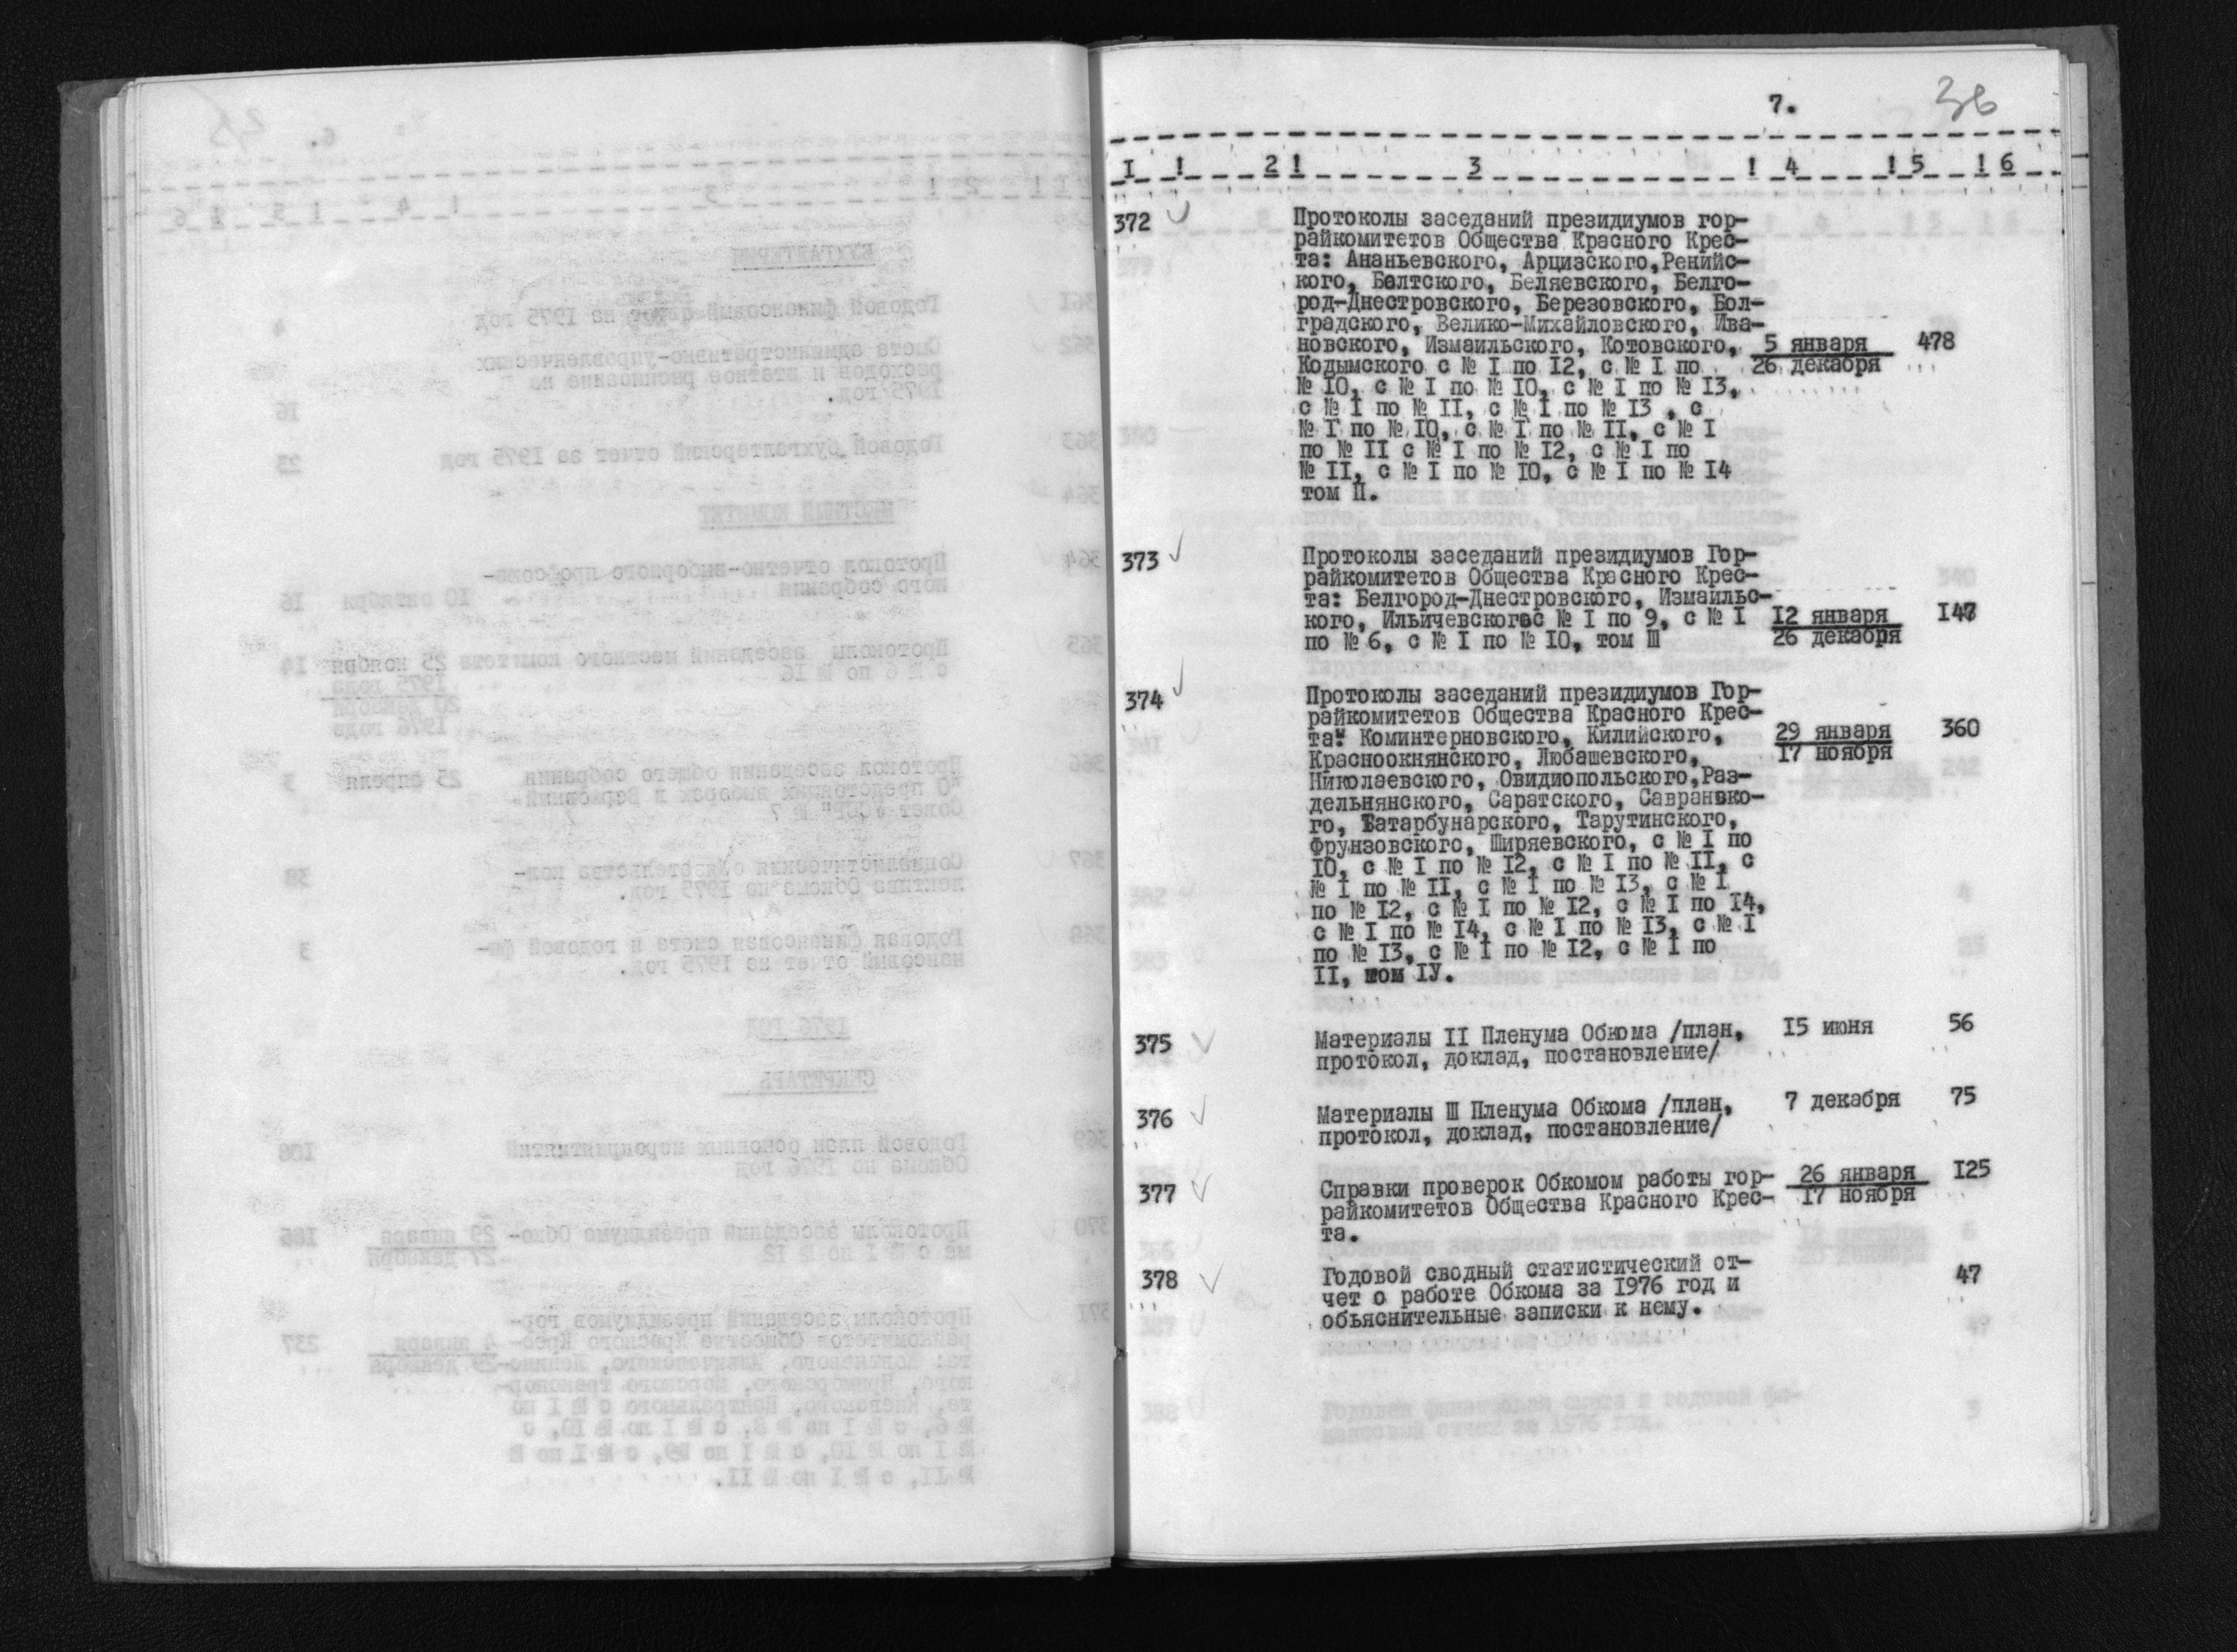 7.
36
I ! 2 ! 3 ! 4 ! 5 ! 6
372 Протоколы заседаний президиумов гор-
райкомитетов Общества Красного Крес-
та: Ананьевского, Арцизского,Ренийс-
кого, Балтского, Беляевского, Белго-
род-Днестровского, Березовского, Бол-
градского, Велико-Михайловского, Ива-
новского, Измаильского, Котовского, 5 января 478
Кодымского с № I по I2, с № I по 26 декабря
№ I0, с № I по № I0, с № I по № I3,
с № I по № II, с № I по № I3 , с
№ I по № I0, с № I по № II, с № I
по № II с № I по № I2, с № I по
№ II, с № I по № I0, с № I по № I4
том II.
373 Протоколы заседаний президиумов Гор-
райкомитетов Общества Красного Крес-
та: Белгород-Днестровского, Измаильс-
кого, Ильичевского с № I по 9, с № I I2 января I47
по № 6, с № I по № I0, том III 26 декабря
374 Протоколы заседаний президиумов Гор-
райкомитетов Общества Красного Крес-
та: Коминтерновского, Килийского, 29 января 360
Красноокнянского, Любашевского, 17 ноября
Николаевского, Овидиопольского,Раз-
дельнянского, Саратского, Савранско-
го, Татарбунарского, Тарутинского,
Фрунзовского, Ширяевского, с № I по
I0, с № I по № I2, с № I по № II, с
№ I по № II, с № I по № I3, с № I
по № I2, с № I по № I2, с № I по I4,
с № I по № I4, с № I по № I3, с № I
по № I3, с № I по № I2, с № I по
II, том IУ.
375 Материалы II Пленума Обкома /план, I5 июня 56
протокол, доклад, постановление/
376 Материалы III Пленума Обкома /план, 7 декабря 75
протокол, доклад, постановление/
377 Справки проверок Обкомом работы гор- 26 января I25
райкомитетов Общества Красного Крес- I7 ноября
та.
378 Годовой сводный статистический от- 47
чет о работе Обкома за I976 год и
обьяснительные записки к нему.